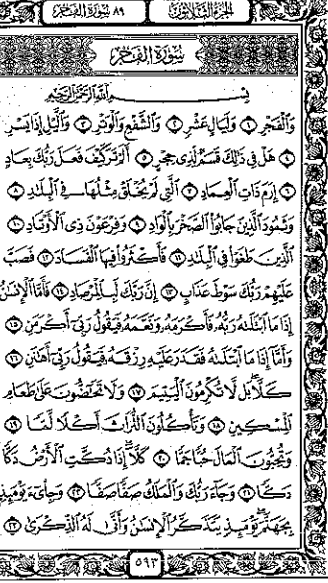 الجزء الثلاثون ٨٩ سورة الفجر
سورة الفجر
بِسْمِ اللَّهِ الرَّحْمَٰنِ الرَّحِيمِ
وَٱلۡفَجۡرِ ١ وَلَيَالٍ عَشۡرٖ ٢ وَٱلشَّفۡعِ وَٱلۡوَتۡرِ ٣ وَٱلَّيۡلِ إِذَا يَسۡرِ
٤ هَلۡ فِي ذَٰلِكَ قَسَمٞ لِّذِي حِجۡرٍ ٥ أَلَمۡ تَرَ كَيۡفَ فَعَلَ رَبُّكَ بِعَادٍ
٦ إِرَمَ ذَاتِ ٱلۡعِمَادِ ٧ ٱلَّتِي لَمۡ يُخۡلَقۡ مِثۡلُهَا فِي ٱلۡبِلَٰدِ ٨
وَثَمُودَ ٱلَّذِينَ جَابُواْ ٱلصَّخۡرَ بِٱلۡوَادِ ٩ وَفِرۡعَوۡنَ ذِي ٱلۡأَوۡتَادِ ١٠
ٱلَّذِينَ طَغَوۡاْ فِي ٱلۡبِلَٰدِ ١١ فَأَكۡثَرُواْ فِيهَا ٱلۡفَسَادَ ١٢ فَصَبَّ
عَلَيۡهِمۡ رَبُّكَ سَوۡطَ عَذَابٍ ١٣ إِنَّ رَبَّكَ لَبِٱلۡمِرۡصَادِ ١٤ فَأَمَّا ٱلۡإِنسَٰنُ
إِذَا مَا ٱبۡتَلَىٰهُ رَبُّهُۥ فَأَكۡرَمَهُۥ وَنَعَّمَهُۥ فَيَقُولُ رَبِّيٓ أَكۡرَمَنِ ١٥
وَأَمَّآ إِذَا مَا ٱبۡتَلَىٰهُ فَقَدَرَ عَلَيۡهِ رِزۡقَهُۥ فَيَقُولُ رَبِّيٓ أَهَٰنَنِ ١٦
كَلَّاۖ بَل لَّا تُكۡرِمُونَ ٱلۡيَتِيمَ ١٧ وَلَا تَحَٰٓضُّونَ عَلَىٰ طَعَامِ
ٱلۡمِسۡكِينِ ١٨ وَتَأۡكُلُونَ ٱلتُّرَاثَ أَكۡلٗا لَّمّٗا ١٩
وَتُحِبُّونَ ٱلۡمَالَ حُبّٗا جَمّٗا ٢٠ كَلَّآۖ إِذَا دُكَّتِ ٱلۡأَرۡضُ دَكّٗا
دَكّٗا ٢١ وَجَآءَ رَبُّكَ وَٱلۡمَلَكُ صَفّٗا صَفّٗا ٢٢ وَجِاْيٓءَ يَوۡمَئِذِۭ
بِجَهَنَّمَۚ يَوۡمَئِذٖ يَتَذَكَّرُ ٱلۡإِنسَٰنُ وَأَنَّىٰ لَهُ ٱلذِّكۡرَىٰ ٢٣
٥٩٣